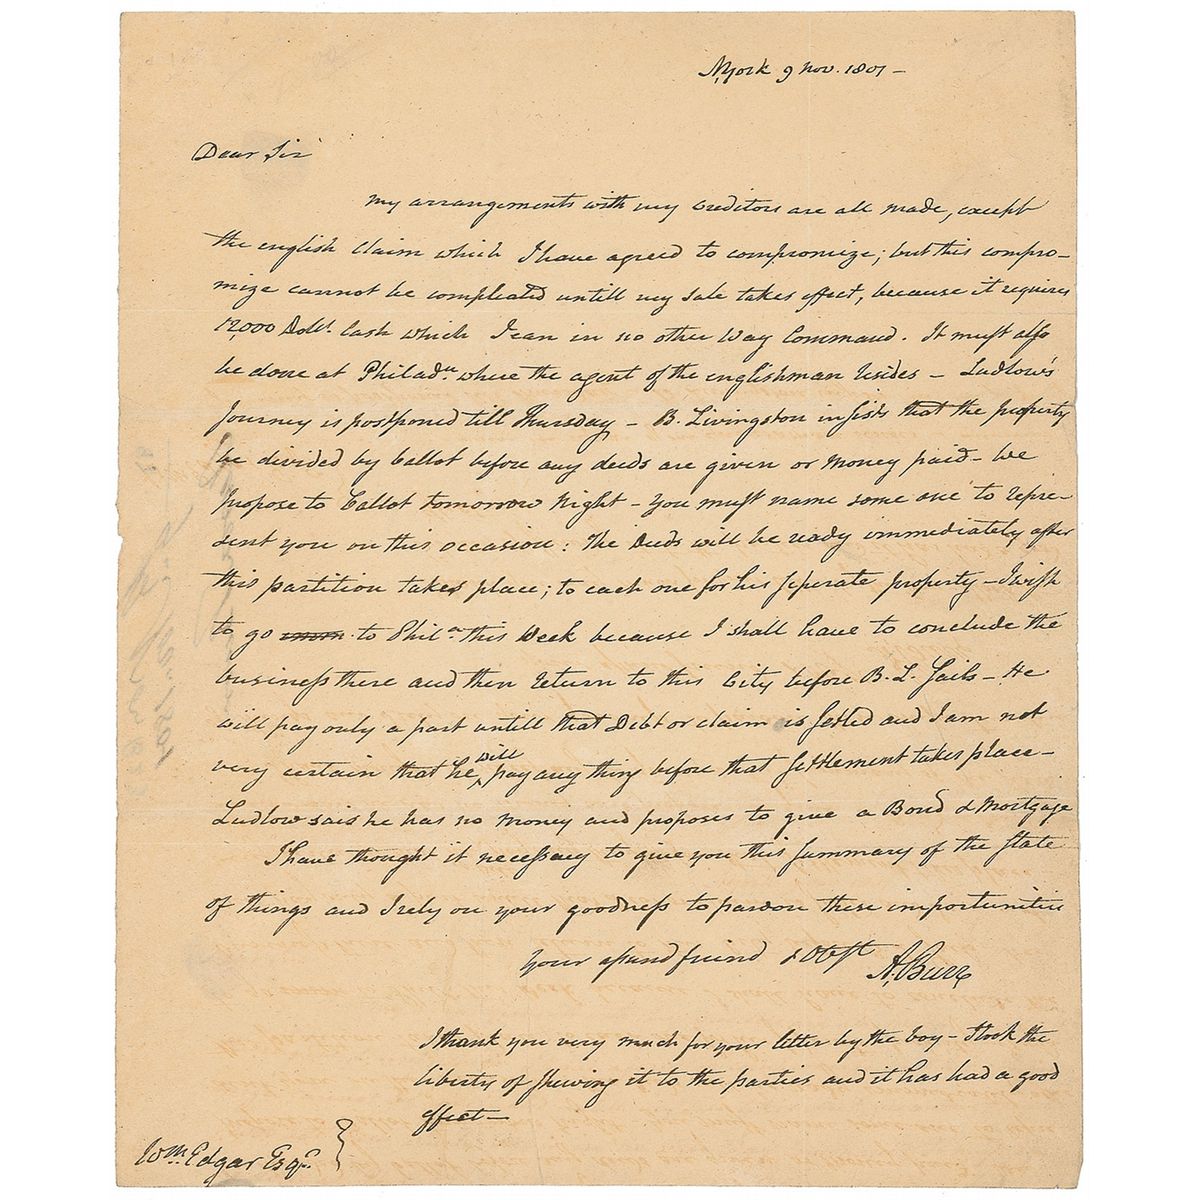 NYork 9 Nov. 1801 –
Dear Sir
My arrangements with my Creditors are all made, except
the english Claim which I have agreed to compromize; but this compro-
mize cannot be compleated untill my sale takes effect, because it requires
12,000 Dolls. Cash which I can in no other Way Command. It must also
be done at Philada. where the agent of the englishman resides – Ludlow's
Journey is postponed till Thursday – B. Livingston insists that the property
be divided by ballot before any deeds are given or money paid – We
propose to ballot tomorrow Night – You must name some one to repre-
sent you on this occasion: The Deeds will be ready immediately after
this partition takes place; to each one for his seperate property – I wish
to go to Phila. this Week because I shall have to conclude the
business there and then return to this City before B. L. Sails – He
will pay only a part untill that Debt or claim is settled and I am not
very certain that he will pay any thing before that settlement takes place –
Ludlow sais he has no money and proposes to give a Bond & Mortgage
I have thought it necessary to give you this summary of the state
of things and I rely on your goodness to pardon these importunities
Your assured friend & Obt st A. Burr
I thank you very much for your letter by the boy – I took the
liberty of shewing it to the parties and it has had a good
effect –
Wm. Edgar Esqr.